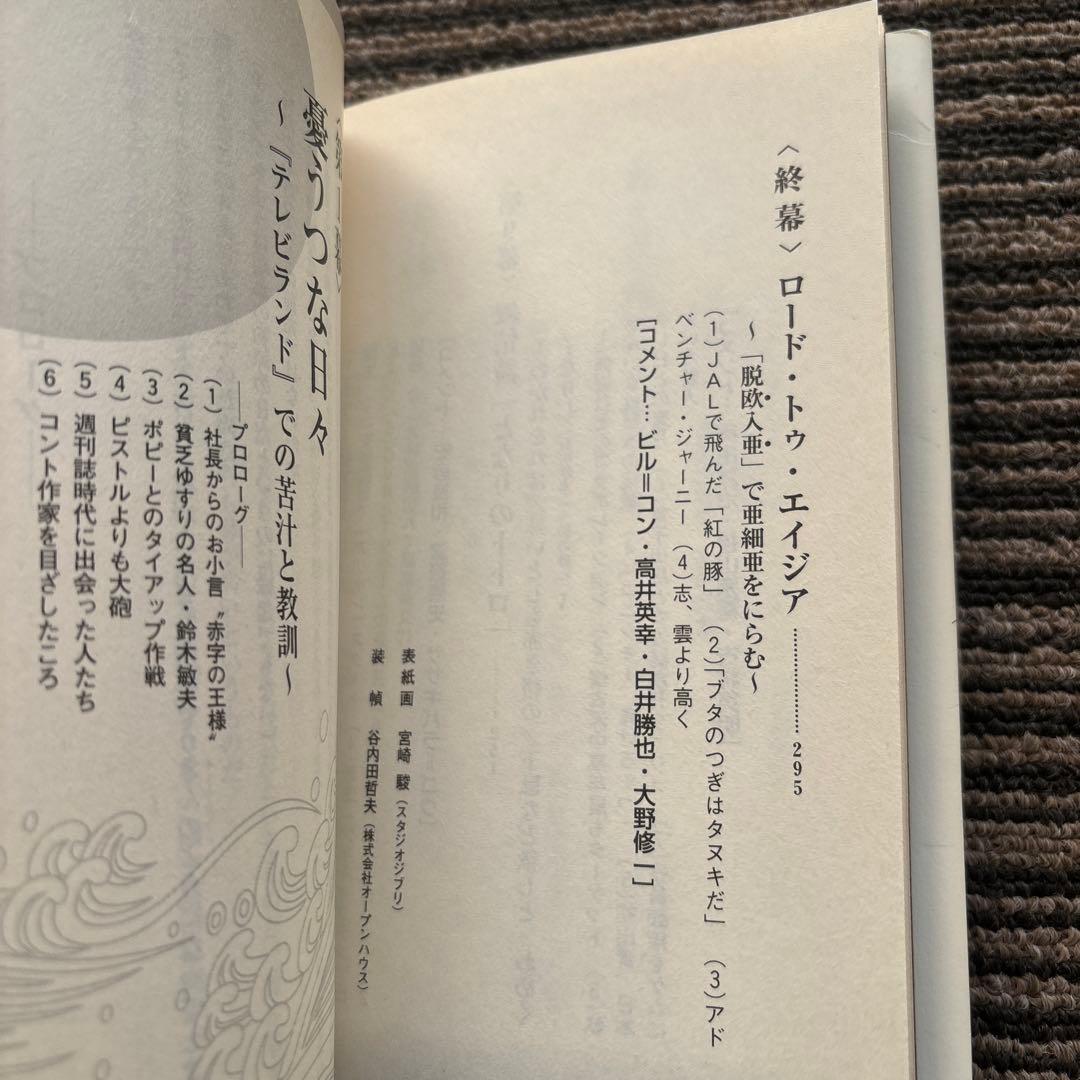 〈終幕〉ロード・トゥ・エイジア……………… 295
～「脱欧入亜」で亜細亜をにらむ～
(1)JALで飛んだ「紅の豚」 (2)「ブタのつぎはタヌキだ」 (3)アド
ベンチャー・ジャーニー (4)志、雲より高く
[コメント…ビル＝コン・高井英幸・白井勝也・大野修一]
表紙画 宮崎 駿(スタジオジブリ)
装 幀 谷内田哲夫(株式会社オープンハウス)
憂うつな日々
～『テレビランド』での苦汁と教訓～
──プロローグ──
(1) 社長からのお小言〝赤字の王様〟
(2) 貧乏ゆすりの名人・鈴木敏夫
(3) ポピーとのタイアップ作戦
(4) ピストルよりも大砲
(5) 週刊誌時代に出会った人たち
(6) コント作家を目ざしたころ